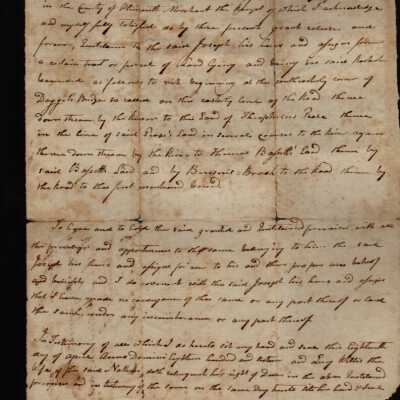 in the County of Plimouth Merchant the Receipt of which I acknowledge
and myself fully satisfied do by these presents grant release and
forever Quitclaim to the said Joseph his heirs and assigns forever
a certain tract or parcel of Land lying and being in said Rochester
bounded as follows to wit beginning at the southerly corner of
Doggets Bridge so called on the easterly side of the Road thence
down stream by the River to the Land of Theophilus Pease thence
in the line of said Pease's Land in several courses to the River again
thence down stream by the River to Thomas Bassetts Land thence by
said Bassetts Land and by Brook to the Road thence by
the Road to the first mentioned bound
To have and to hold the said granted and Quitclaimed premises with all
the privileges and appurtenances to the same belonging to him the said
Joseph his heirs and assigns for ever to his and their proper use behoof
and benefit and I do covenant with the said Joseph his heirs and assigns
that I have made no conveyance of the same or any part thereof or laid
the same under any incumbrance or any part thereof
In Testimony of all which I do hereto set my hand and seal this Eighteenth
day of April Anno Domini Eighteen hundred and and Lucy Willis the
wife of the said doth relinquish her right of Dower in the above Quitclaimed
premises and in testimony of the same on the same day hereto sets her hand & seal